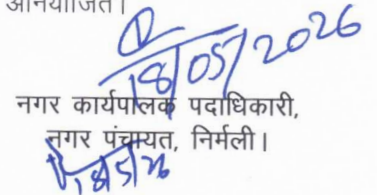 अनियोजित।
18/05/2026
नगर कार्यपालक पदाधिकारी,
नगर पंचायत, निर्मली।
18/5/26